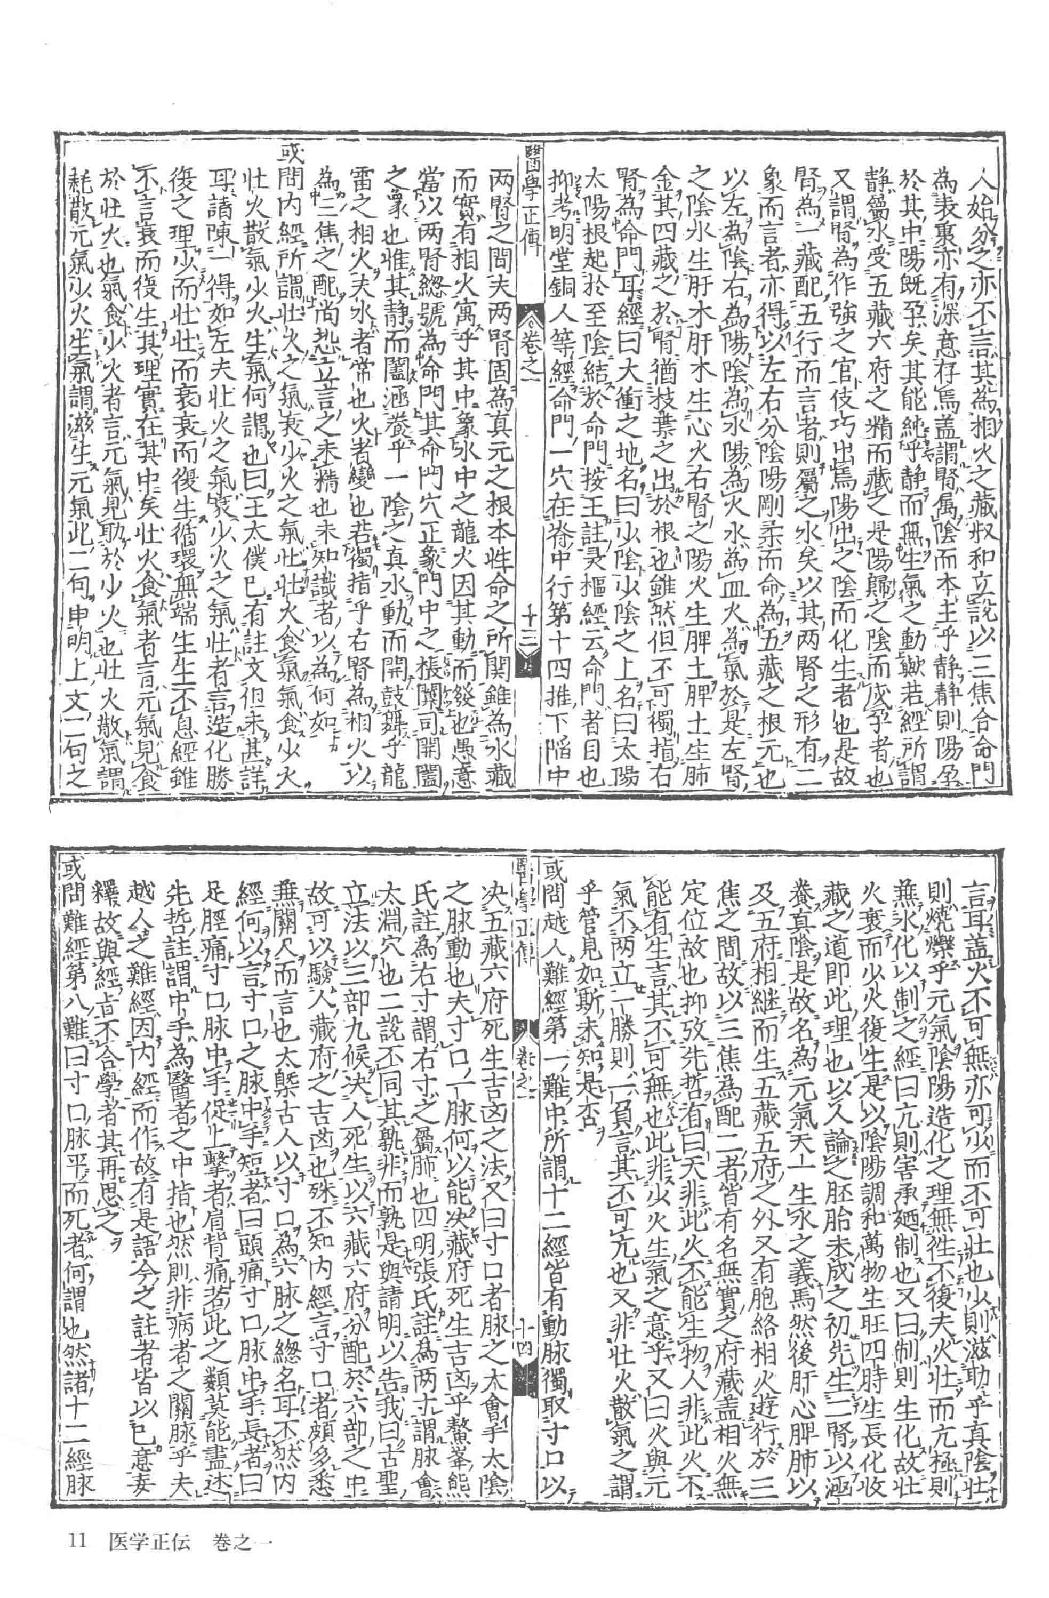 人始分之亦不言其為相火之藏叔和立說以三焦合命門
為表裏亦有深意存焉盖謂腎属陰而本主乎静静則陽孕
於其中陽既孕矣其能純乎静而無生氣之動歟若經所謂
静屬水受五藏六府之精而藏之是陽歸之陰而成孕者也
又謂腎為作強之官伎巧出焉陽出之陰而化生者也是故
腎為一藏配五行而言者則屬之水矣以其两腎之形有二
象而言者亦得以左右分陰陽剛柔而命為五藏之根元也
以左為陰右為陽陰為水陽為火水為血火為氣於是左腎
之陰水生肝木肝木生心火右腎之陽火生脾土脾土生肺
金其四藏之於腎猶枝葉之出於根也雖然但不可獨指右
腎為命門耳經曰大衝之地名曰少陰少陰之上名曰太陽
太陽根起於至陰結於命門按王註灵樞經云命門者目也
抑考明堂銅人等經命門一穴在脊中行第十四推下陥中
醫學正傳 卷之一 十三
两腎之間夫两腎固為真元之根本性命之所関雖為水藏
而實有相火寓乎其中象水中之龍火因其動而發也愚意
當以两腎緫號為命門其命門穴正象門中之棖闑司開闔
之象也惟其静而闔涵養乎一陰之真水動而開鼓舞乎龍
雷之相火夫水者常也火者變也若獨指乎右腎為相火以
為三焦之配尚恐立言之未精也未知識者以為何如
或問内經所謂壮火之氣衰少火之氣壮壮火食氣氣食少火
壮火散氣少火生氣何謂也曰王太僕已有註文但未甚詳
耳請陳一得如左夫壮火之氣衰少火之氣壮者言造化勝
復之理少而壮壮而衰衰而復生循環無端生生不息經雖
不言衰而復生其理實在其中矣壮火食氣者言元氣見食
於壮火也氣食少火者言元氣見助於少火也壮火散氣謂
耗散元氣少火生氣謂滋生元氣此二句申明上文二句之
言耳盖火不可無亦可少而不可壮也少則滋助乎真陰壮
則燒爍乎元氣陰陽造化之理無往不復夫火壮而亢極則
無水化以制之經曰亢則害承廼制也又曰制則生化故壮
火衰而少火復生是以陰陽調和萬物生旺四時生長化收
藏之道即此理也以人論之胚胎未成之初先生二腎以涵
養真陰是故名為元氣天一生水之義焉然後肝心脾肺以
及五府相継而生五藏五府之外又有胞絡相火遊行於三
焦之間故以三焦為配二者皆有名無實之府藏盖相火無
定位故也抑攷先哲有曰天非此火不能生物人非此火不
能有生言其不可無也此非少火生氣之意乎又曰火與元
氣不两立一勝則一負言其不可亢也又非壮火散氣之謂
乎管見如斯未知是否
或問越人難經第一難中所謂十二經皆有動脉獨取寸口以
醫學正傳 卷之一 十四
决五藏六府死生吉凶之法又曰寸口者脉之大會手太陰
之脉動也夫寸口一脉何以能决藏府死生吉凶乎鰲峯熊
氏註為右寸謂右寸之屬肺也四明張氏註為两寸謂脉會
太淵穴也二說不同其孰非而孰是與請明以告我曰古聖
立法以三部九候决人死生以六藏六府分配於六部之中
故可以驗人藏府之吉凶也殊不知内經言寸口者頗多悉
無關尺而言也大槩古人以寸口為六脉之緫名耳不然内
經何以言寸口之脉中手短者曰頭痛寸口脉中手長者曰
足脛痛寸口脉中手促上擊者肩背痛若此之類莫能盡述
先哲註謂中手為醫者之中指也然則非病者之關脉乎夫
越人之難經因内經而作故有是語今之註者皆以己意妄
釋故與經旨不合學者其再思之
或問難經第八難曰寸口脉平而死者何謂也然諸十二經脉
11 医学正伝 巻之一